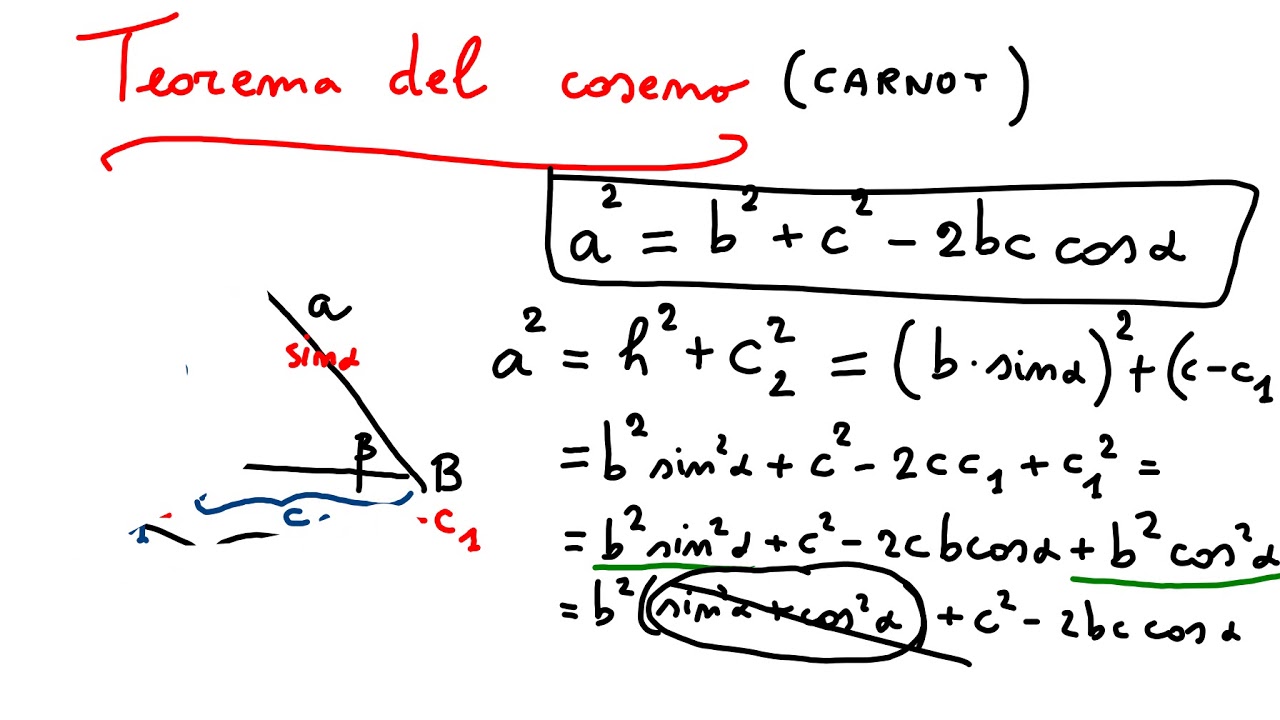 Teorema del coseno (CARNOT)
a² = b² + c² - 2bc cosα
a² = h² + c₂² = (b·sinα)² + (c-c₁
= b² sin²α + c² - 2cc₁ + c₁² =
= b² sin²α + c² - 2cbcosα + b² cos²α
= b² (sin²α + cos²α) + c² - 2bc cosα
a
sinα
β
B
c
-c₁